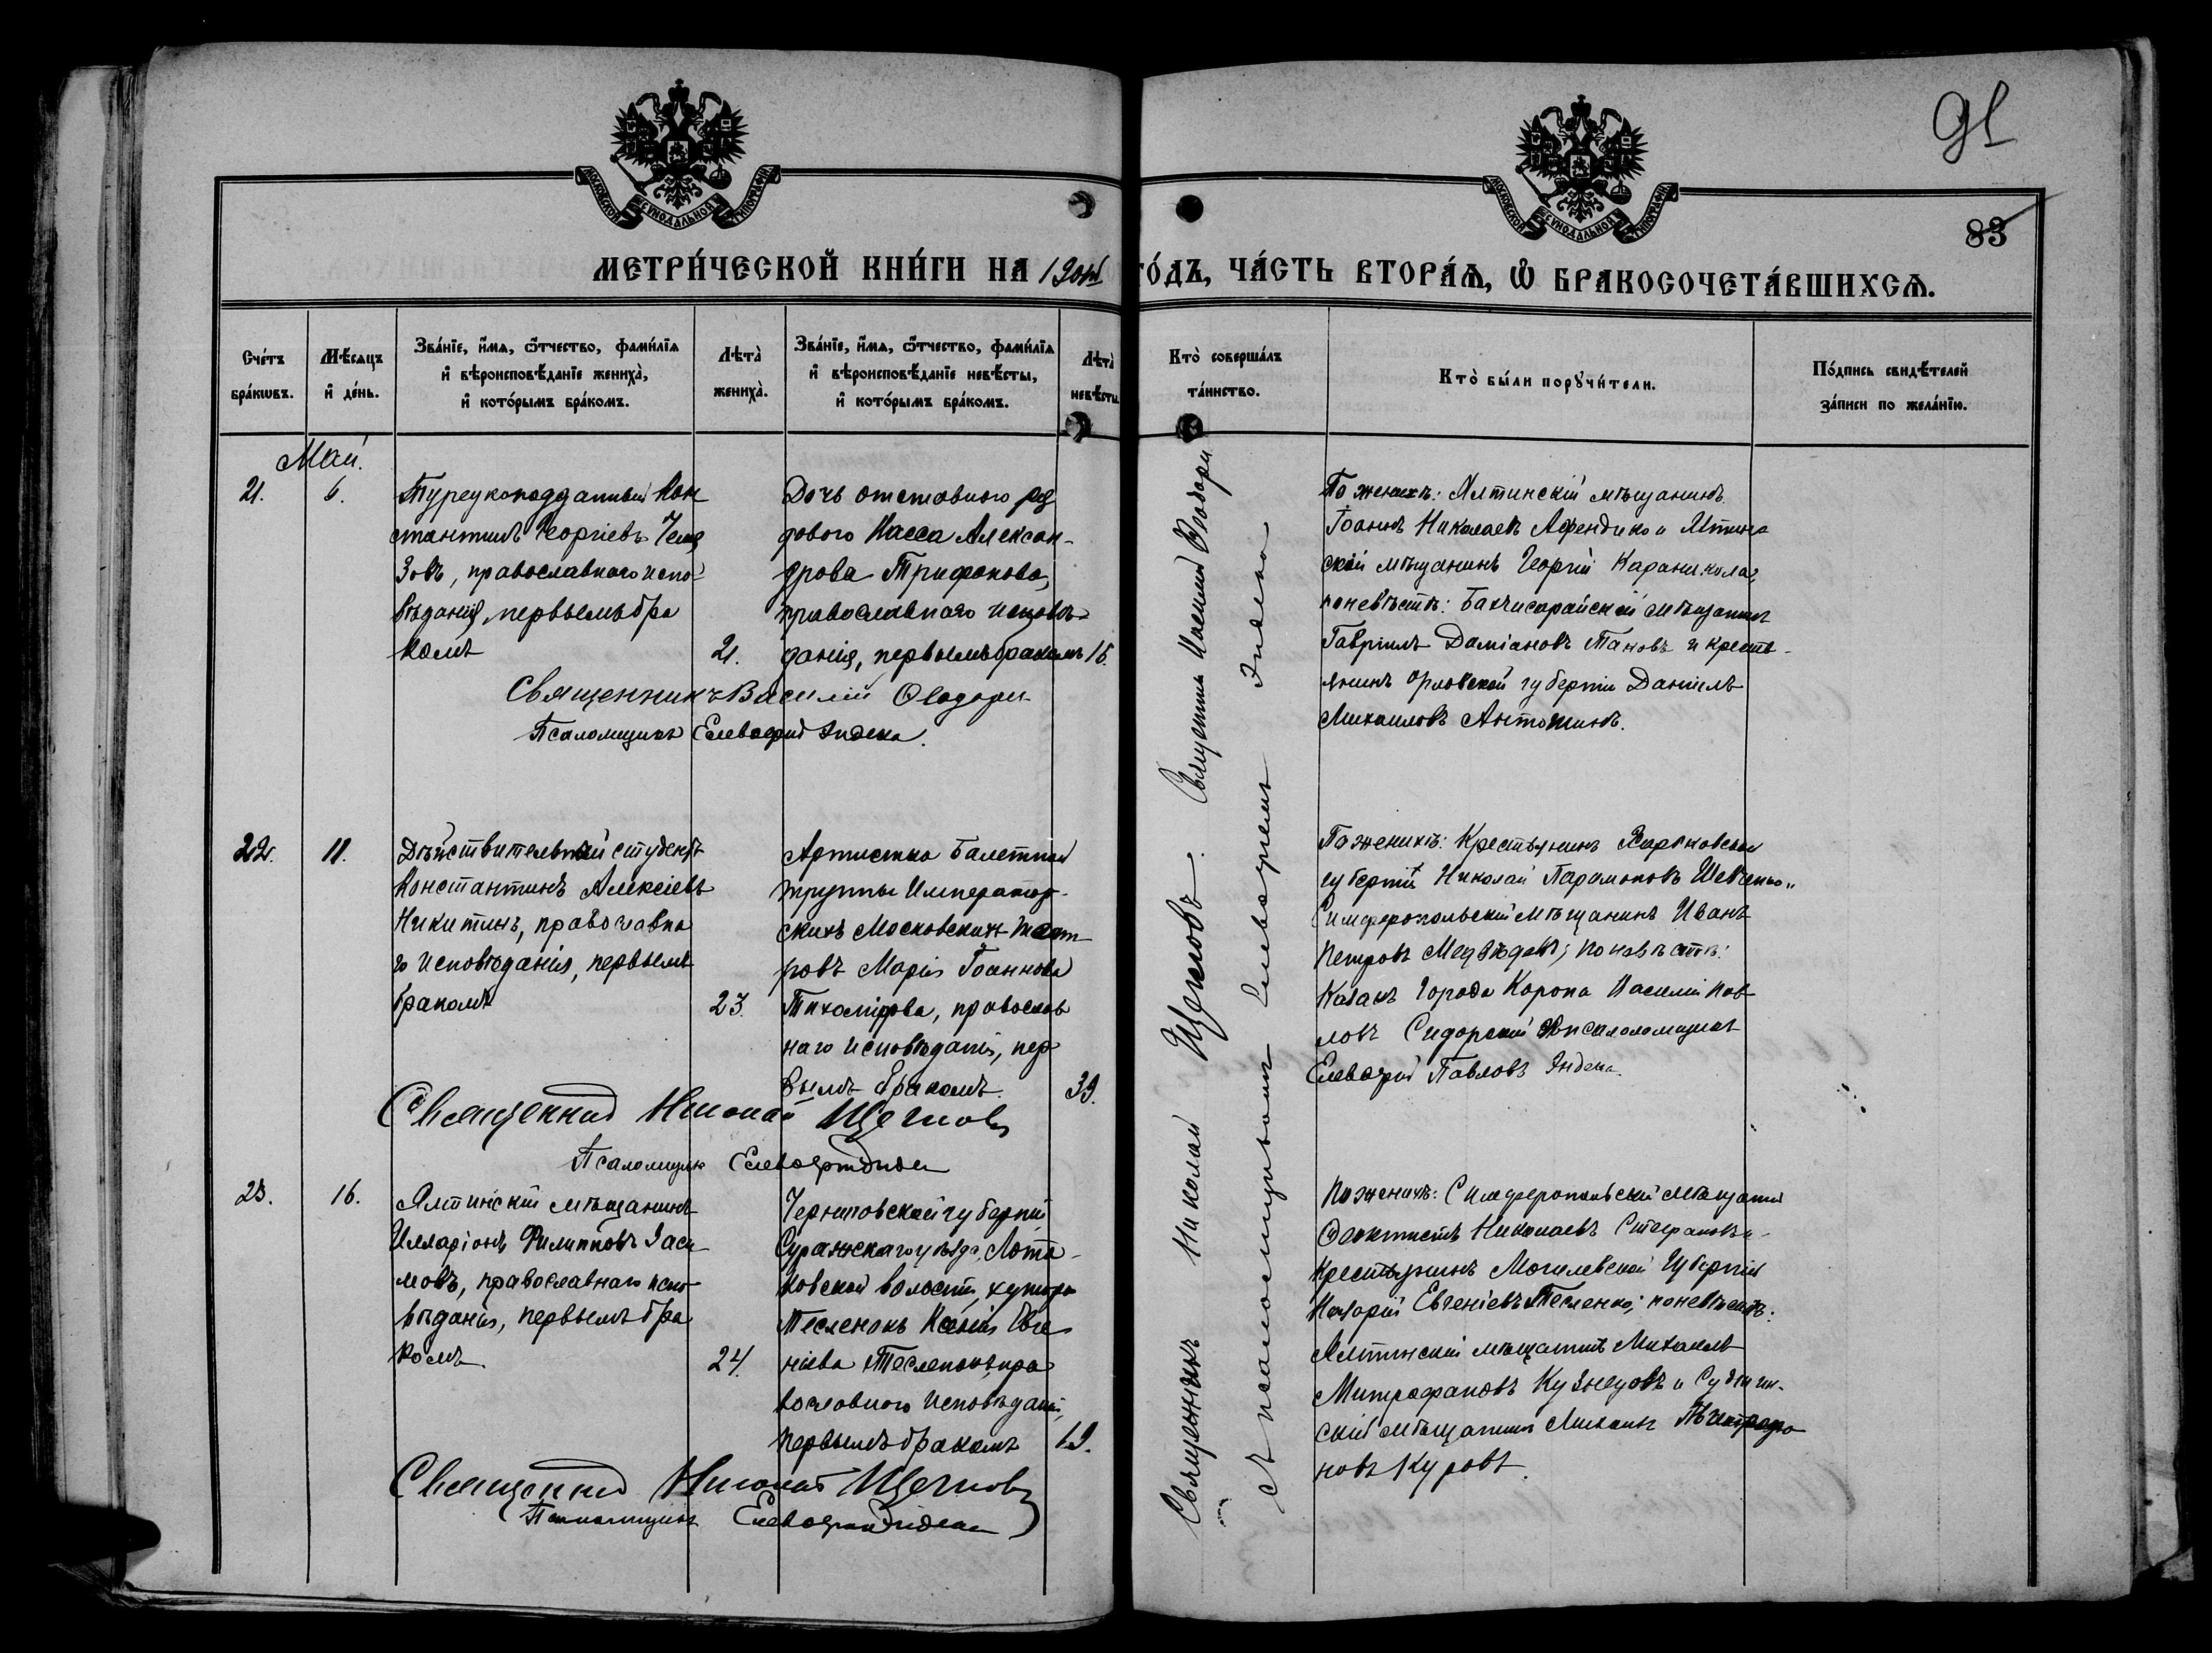 91
83
МОСКОВСКОЙ СѴНОДАЛЬНОЙ ТИПОГРАФІИ
МОСКОВСКОЙ СѴНОДАЛЬНОЙ ТИПОГРАФІИ
МЕТРИ́ЧЕСКОЙ КНИ́ГИ НА
ГО́ДЪ, ЧА́СТЬ ВТОРА́Ѧ, Ѡ БРАКОСОЧЕТА́ВШИХСѦ.
Сче́тъ бра́кѡвъ.
Мѣ́сѧцъ и҆ де́нь.
Зва́нїе, и҆́мѧ, ѻ҆́тчество, фами́лїѧ
и҆ вѣроисповѣ́данїе жениха̀,
и҆ кото́рымъ бра́комъ.
Лѣта̀ жениха̀.
Зва́нїе, и҆́мѧ, ѻ҆́тчество, фами́лїѧ
и҆ вѣроисповѣ́данїе невѣ́сты,
и҆ кото́рымъ бра́комъ.
Лѣта̀ невѣ́сты.
Кто̀ соверша́лъ
та́инство.
Кто̀ бы́ли порꙋчи́тели.
По́дпись свидѣ́телей
за́писи по жела́нїю.
Май.
21.
6.
Турецкоподданный Кон
стантинъ Георгіевъ
зовъ, православнаго испо-
вѣданія, первымъ бра
комъ
21.
Дочь отставного ря
дового Касса Алексан-
дрова Трифонова,
православнаго исповѣ-
данія, первымъ бракомъ
15.
Священникъ Василій
Псаломщикъ Елевферій Индека.
По женихѣ: Ялтинскій мѣщанинъ
Іоаннъ Николаевъ Афендико и Ялтин
скій мѣщанинъ Георгій Караникола;
по невѣстѣ: Бахчисарайскій мѣщанинъ
Гавріилъ Даміановъ Тановъ и кресть-
янинъ Орловской губерніи Даніилъ
Михаиловъ Антошинъ.
22.
11.
Дѣйствительный студентъ
Константинъ Алексіевъ
Никитинъ, православна
го исповѣданія, первымъ
бракомъ
23.
Артистка Балетной
труппы Император-
скихъ Московскихъ теат
ровъ Марія Іоаннова
Тихомірова, православ
наго исповѣданія, пер
вымъ бракомъ.
39.
Священникъ Николай Щегловъ
Псаломщикъ Елевферій Индека
По женихѣ: Крестьянинъ Харьковской
губерніи Николай Парамоновъ Шевченко и
Симферопольскій мѣщанинъ Иванъ
Петровъ Медвѣдевъ; по невѣстѣ:
Казакъ города Коропа Василій Пав
ловъ Сидорскій и псаломщикъ
Елевферій Павловъ Индека.
23.
16.
Ялтинскій мѣщанинъ
Илларіонъ Филипповъ
мовъ, православнаго испо
вѣданія, первымъ бра
комъ
24.
Черниговской губерніи
Суражскаго уѣзда,
ковской волости, хутора
Тесленокъ Ксенія Евге
ніева Тесленокъ, пра
вославного исповѣданія,
первымъ бракомъ
19.
Священникъ Николай Щегловъ
Псаломщикъ Елевферій Индека
По женихѣ: Симферопольскій мѣщанинъ
Феоктистъ Николаевъ Стефановъ и
крестьянинъ Могилевской Губерніи
Назарій Евгеніевъ Тесленко; по невѣстѣ:
Ялтинскій мѣщанинъ Михаилъ
Митрофановъ Кузнецовъ и
скій мѣщанинъ Михаилъ Митрофа
новъ Куровъ.
Священникъ Николай Щегловъ. Священникъ Василій
съ псаломщикомъ Елевферіемъ Индекою